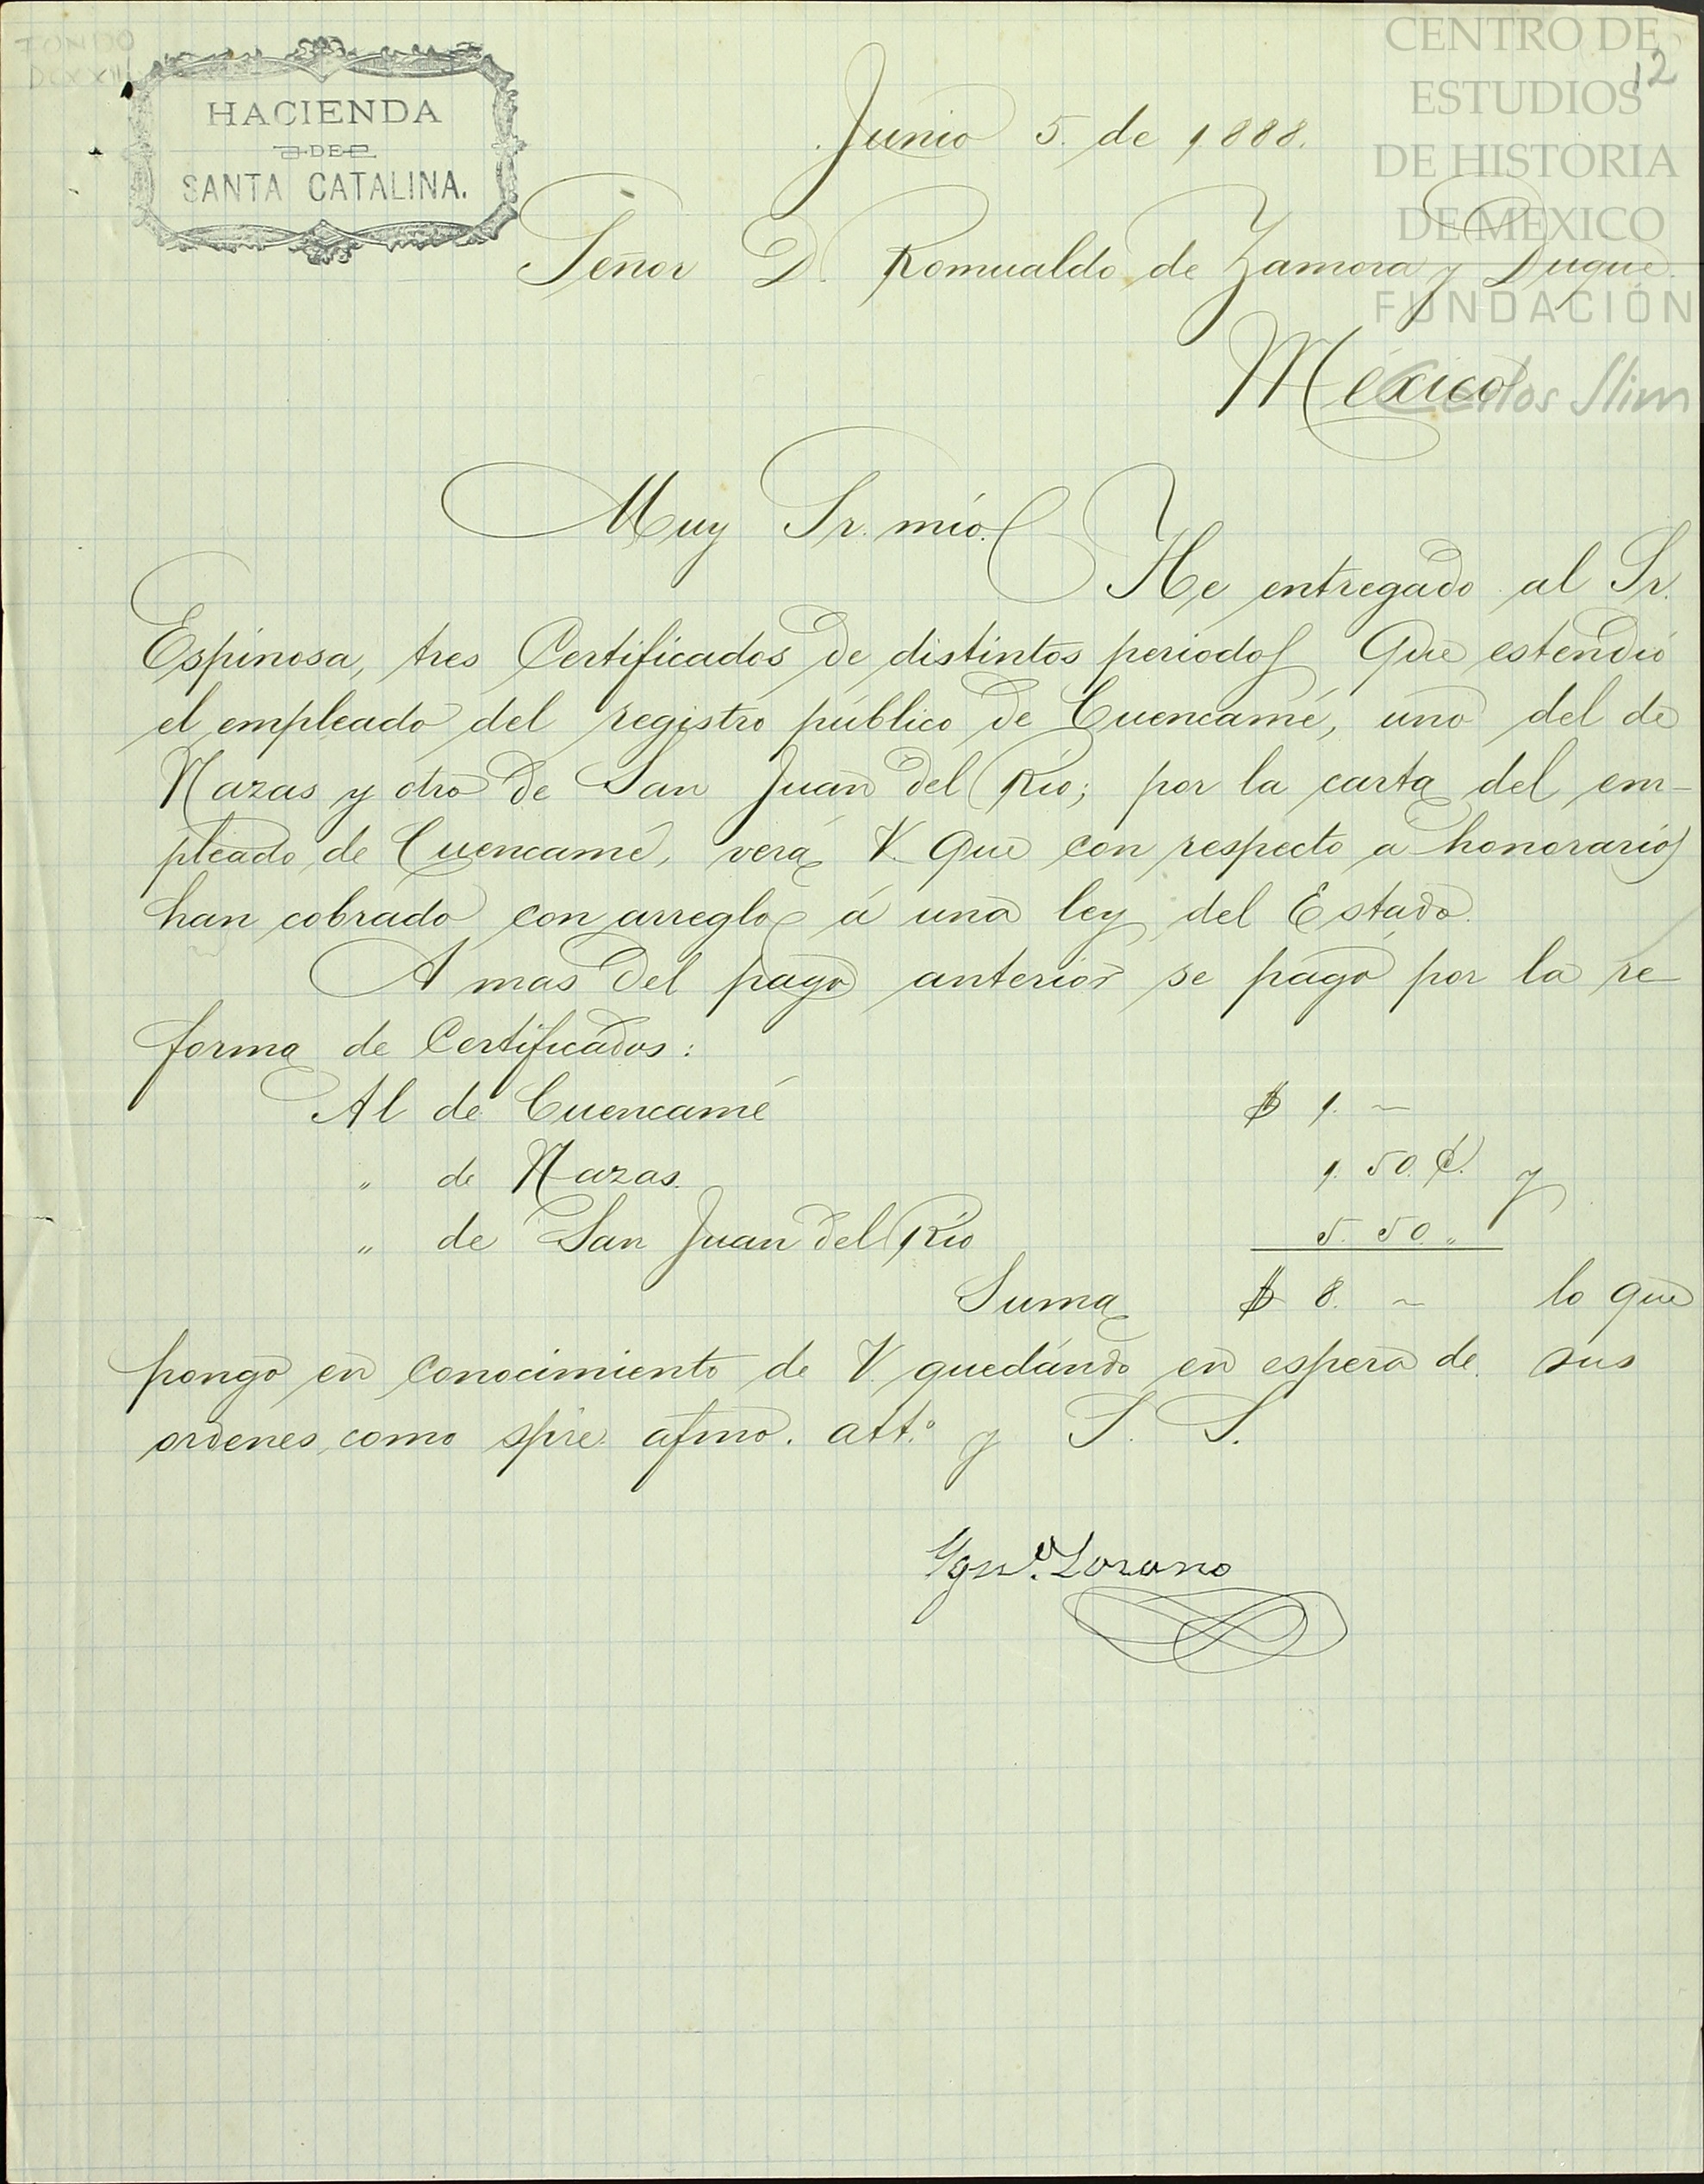 FONDO
DCXXIII
12
CENTRO DE
ESTUDIOS
DE HISTORIA
DE MEXICO
FUNDACIÓN
Carlos Slim
HACIENDA
DE
SANTA CATALINA.
Junio 5. de 1888.
Señor D. Romualdo de Zamora y Duque.
México
Muy Sr. mío.
He entregado al Sr.
Espinosa, tres Certificados de distintos periodos Que estendió
el empleado del registro público de Cuencamé, uno del de
Nazas y otro de San Juan del Río; por la carta del em-
pleado de Cuencamé, verá V. Que con respecto a honorarios
han cobrado con arreglo á una ley del Estado.
A mas del pago anterior se pagó por la re-
forma de Certificados:
Al de Cuencamé $ 1. ~
" de Nazas. 1. 50. ¢. y
" de San Juan del Río 5. 50. "
Suma $ 8. ~ lo que
pongo en Conocimiento de V. quedándo en espera de sus
ordenes, como spre. afmo. att.º y S. S.
Ygn.º Lozano